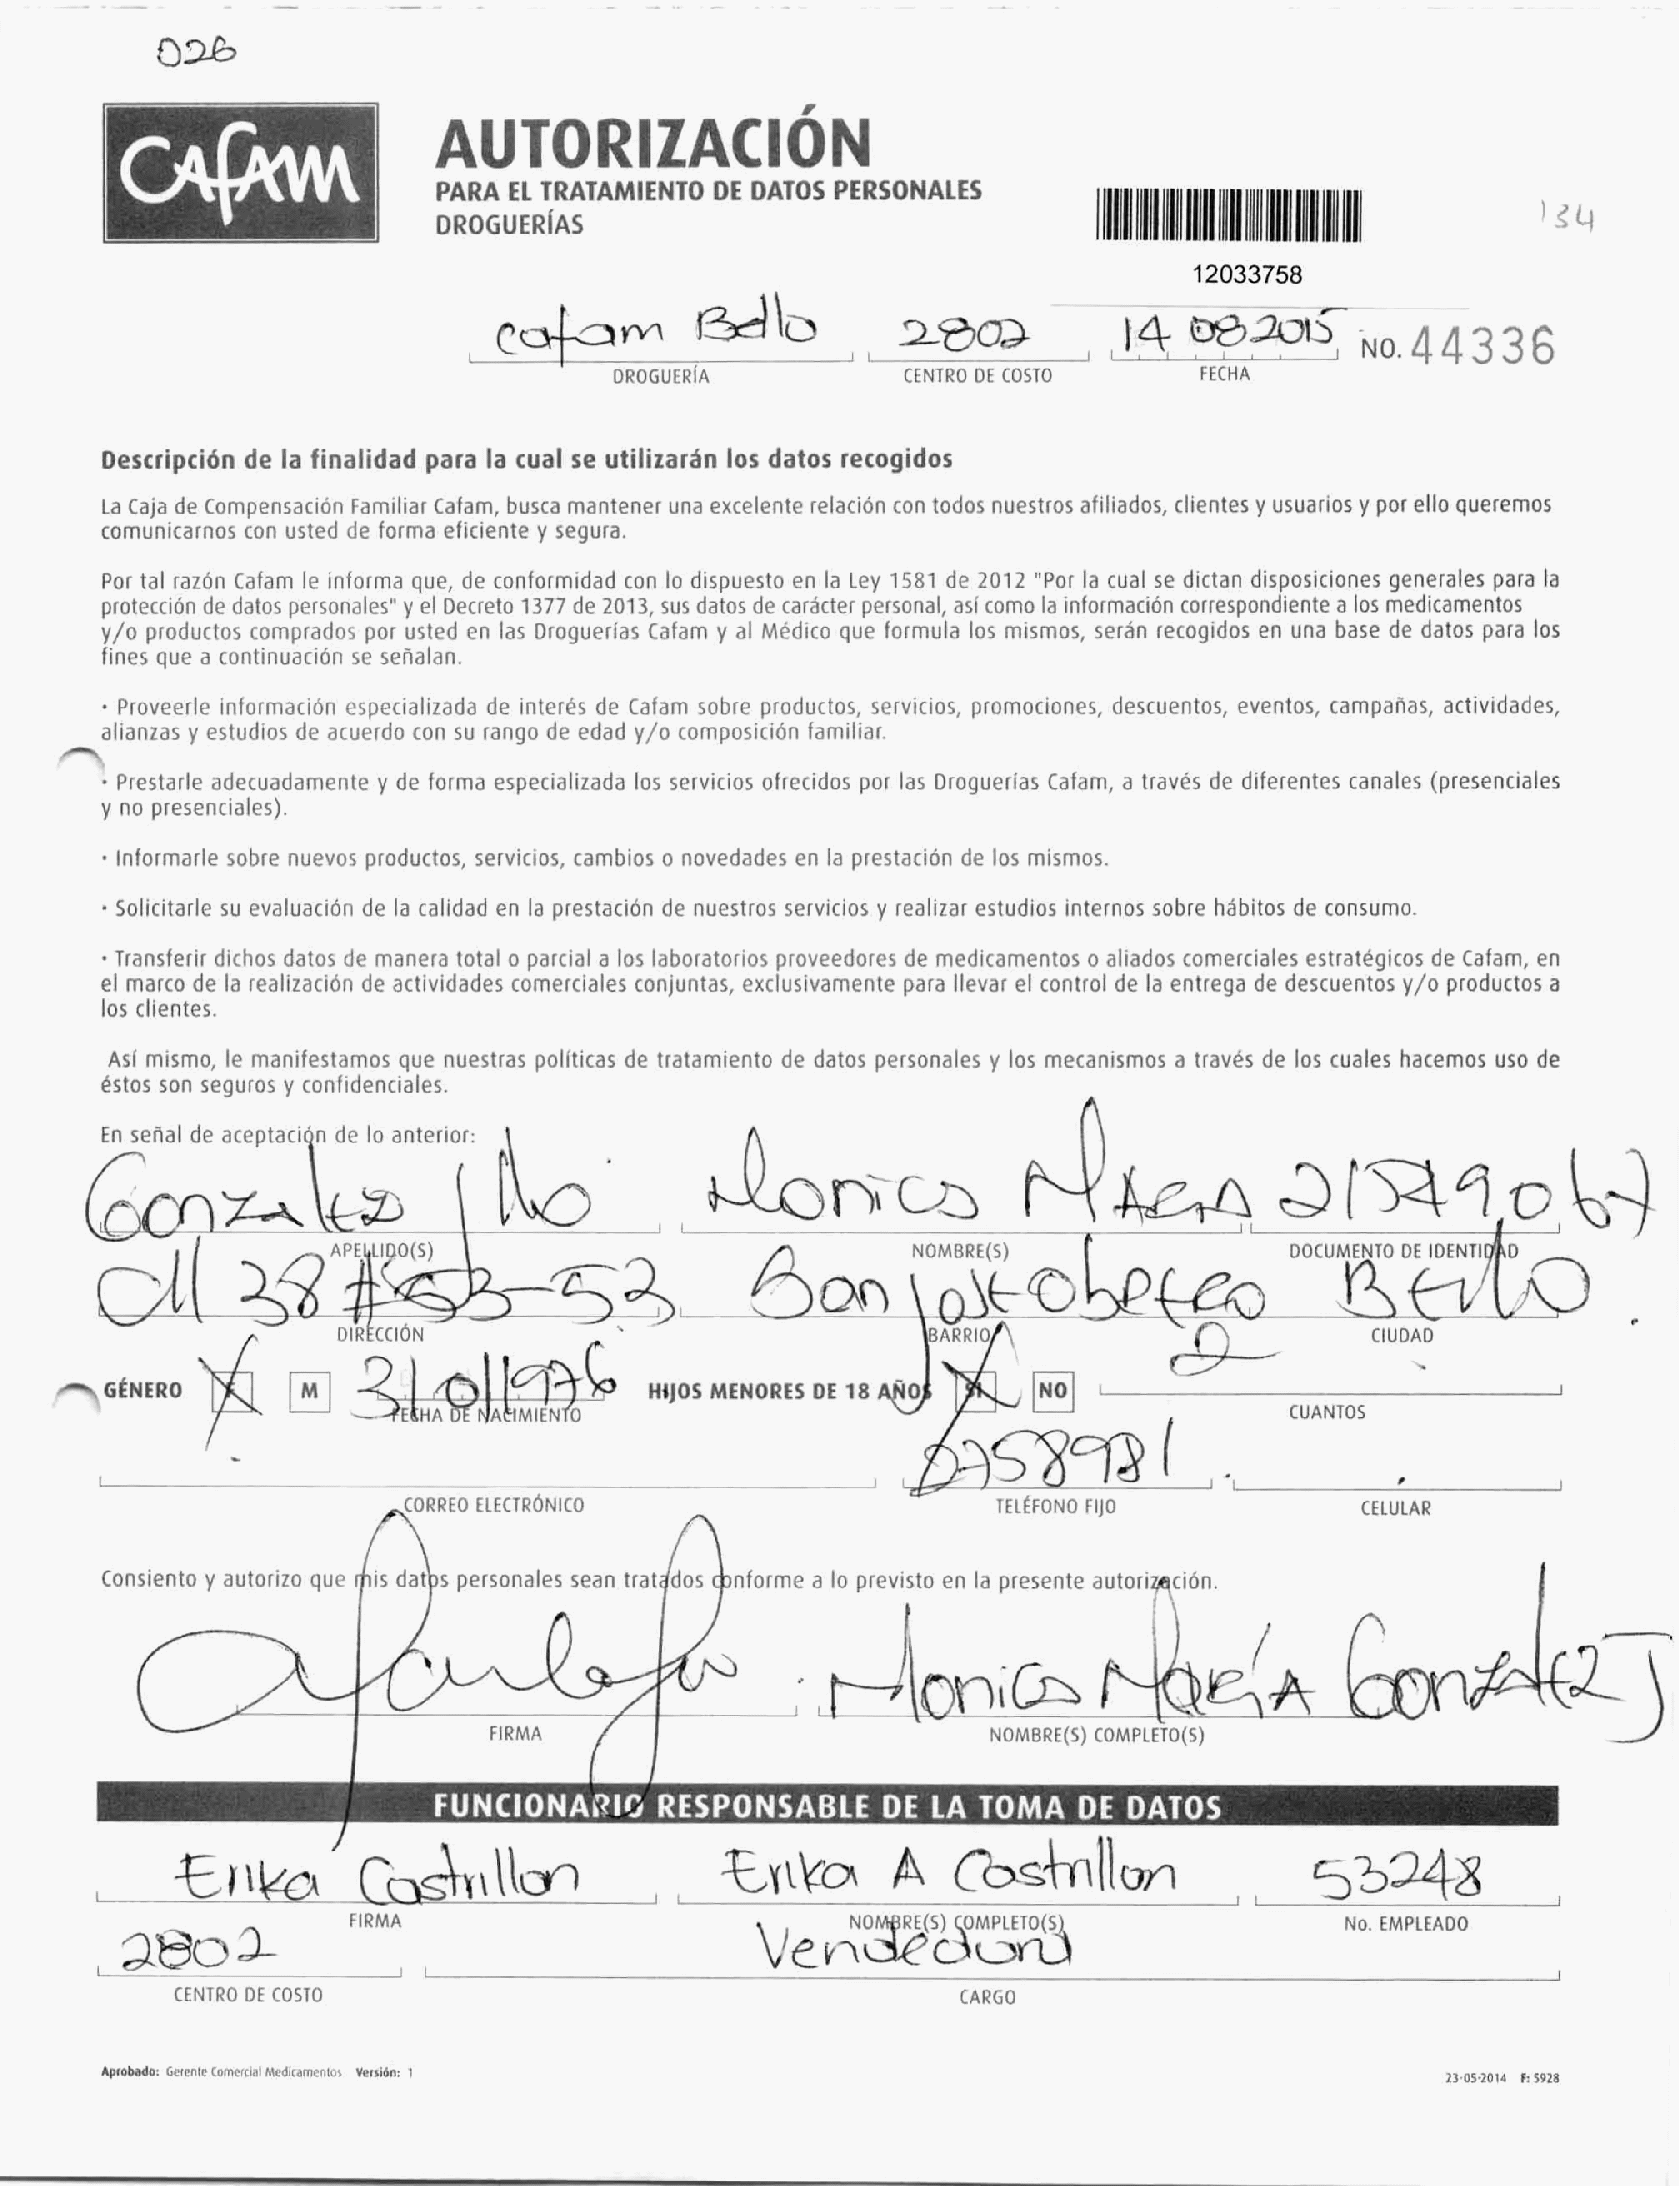 026
CAfAM
AUTORIZACIÓN
PARA EL TRATAMIENTO DE DATOS PERSONALES
DROGUERÍAS
134
12033758
cafam Bello 2802 14 08 2015 NO. 44336
DROGUERÍA CENTRO DE COSTO FECHA
Descripción de la finalidad para la cual se utilizarán los datos recogidos
La Caja de Compensación Familiar Cafam, busca mantener una excelente relación con todos nuestros afiliados, clientes y usuarios y por ello queremos
comunicarnos con usted de forma eficiente y segura.
Por tal razón Cafam le informa que, de conformidad con lo dispuesto en la Ley 1581 de 2012 "Por la cual se dictan disposiciones generales para la
protección de datos personales" y el Decreto 1377 de 2013, sus datos de carácter personal, así como la información correspondiente a los medicamentos
y/o productos comprados por usted en las Droguerías Cafam y al Médico que formula los mismos, serán recogidos en una base de datos para los
fines que a continuación se señalan.
· Proveerle información especializada de interés de Cafam sobre productos, servicios, promociones, descuentos, eventos, campañas, actividades,
alianzas y estudios de acuerdo con su rango de edad y/o composición familiar.
· Prestarle adecuadamente y de forma especializada los servicios ofrecidos por las Droguerías Cafam, a través de diferentes canales (presenciales
y no presenciales).
· Informarle sobre nuevos productos, servicios, cambios o novedades en la prestación de los mismos.
· Solicitarle su evaluación de la calidad en la prestación de nuestros servicios y realizar estudios internos sobre hábitos de consumo.
· Transferir dichos datos de manera total o parcial a los laboratorios proveedores de medicamentos o aliados comerciales estratégicos de Cafam, en
el marco de la realización de actividades comerciales conjuntas, exclusivamente para llevar el control de la entrega de descuentos y/o productos a
los clientes.
Así mismo, le manifestamos que nuestras políticas de tratamiento de datos personales y los mecanismos a través de los cuales hacemos uso de
éstos son seguros y confidenciales.
En señal de aceptación de lo anterior:
Gonzalez Monica MARIA
APELLIDO(S) NOMBRE(S) DOCUMENTO DE IDENTIDAD
38 # 53 Bello
DIRECCIÓN BARRIO CIUDAD
GÉNERO X F M 31 01 1976 HIJOS MENORES DE 18 AÑOS X SI NO 2
FECHA DE NACIMIENTO CUANTOS
58981
CORREO ELECTRÓNICO TELÉFONO FIJO CELULAR
Consiento y autorizo que mis datos personales sean tratados conforme a lo previsto en la presente autorización.
Monica MARÍA Gonzalez J
FIRMA NOMBRE(S) COMPLETO(S)
FUNCIONARIO RESPONSABLE DE LA TOMA DE DATOS
Erika Castrillon Erika A Castrillon 53248
FIRMA NOMBRE(S) COMPLETO(S) No. EMPLEADO
2802 Vendedora
CENTRO DE COSTO CARGO
Aprobado: Gerente Comercial Medicamentos Versión: 1 23-05-2014 F: 5928